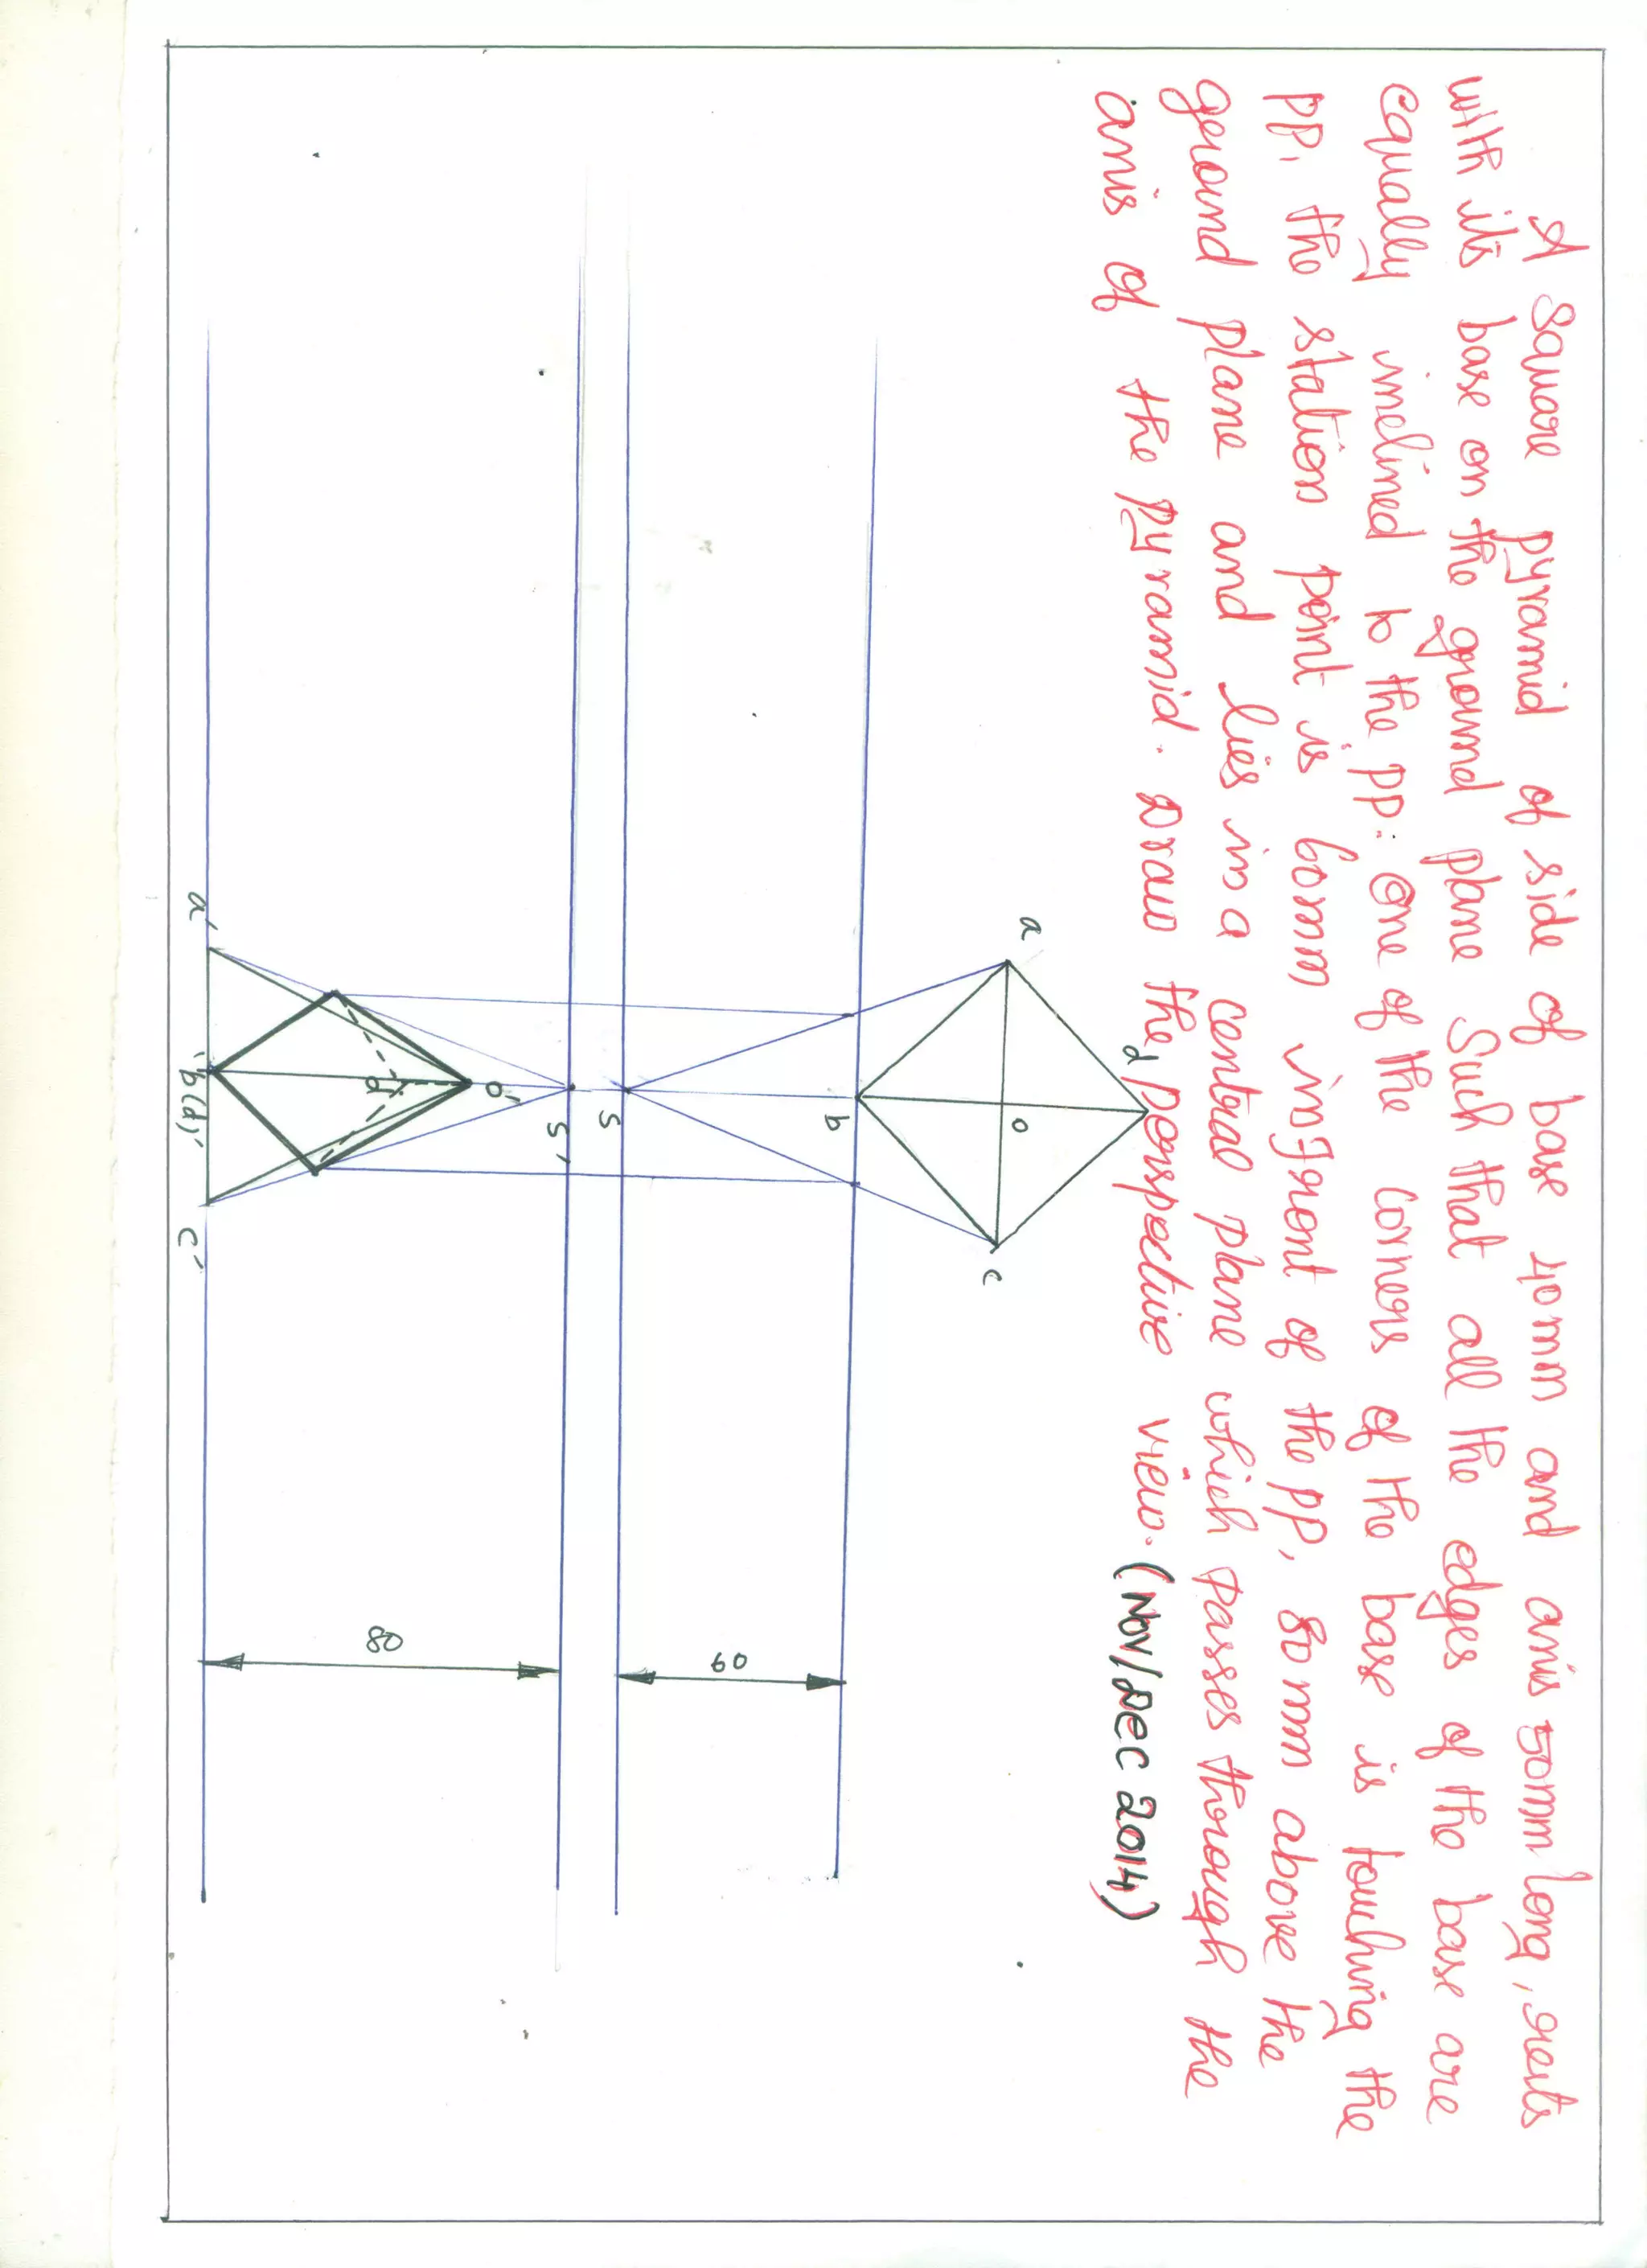 A square pyramid of side of base 40mm and axis 50mm long, rests
with its base on the ground plane such that all the edges of the base are
equally inclined to the pp. One of the corners of the base is touching the
pp. the station point is 60mm infront of the pp, 80mm above the
ground plane and lies in a central plane which passes through the
axis of the pyramid. Draw the perspective view. (Nov/Dec 2014)
d
a
o
c
b
60
s
s'
80
o'
d'
a'
b'(d)'
c'